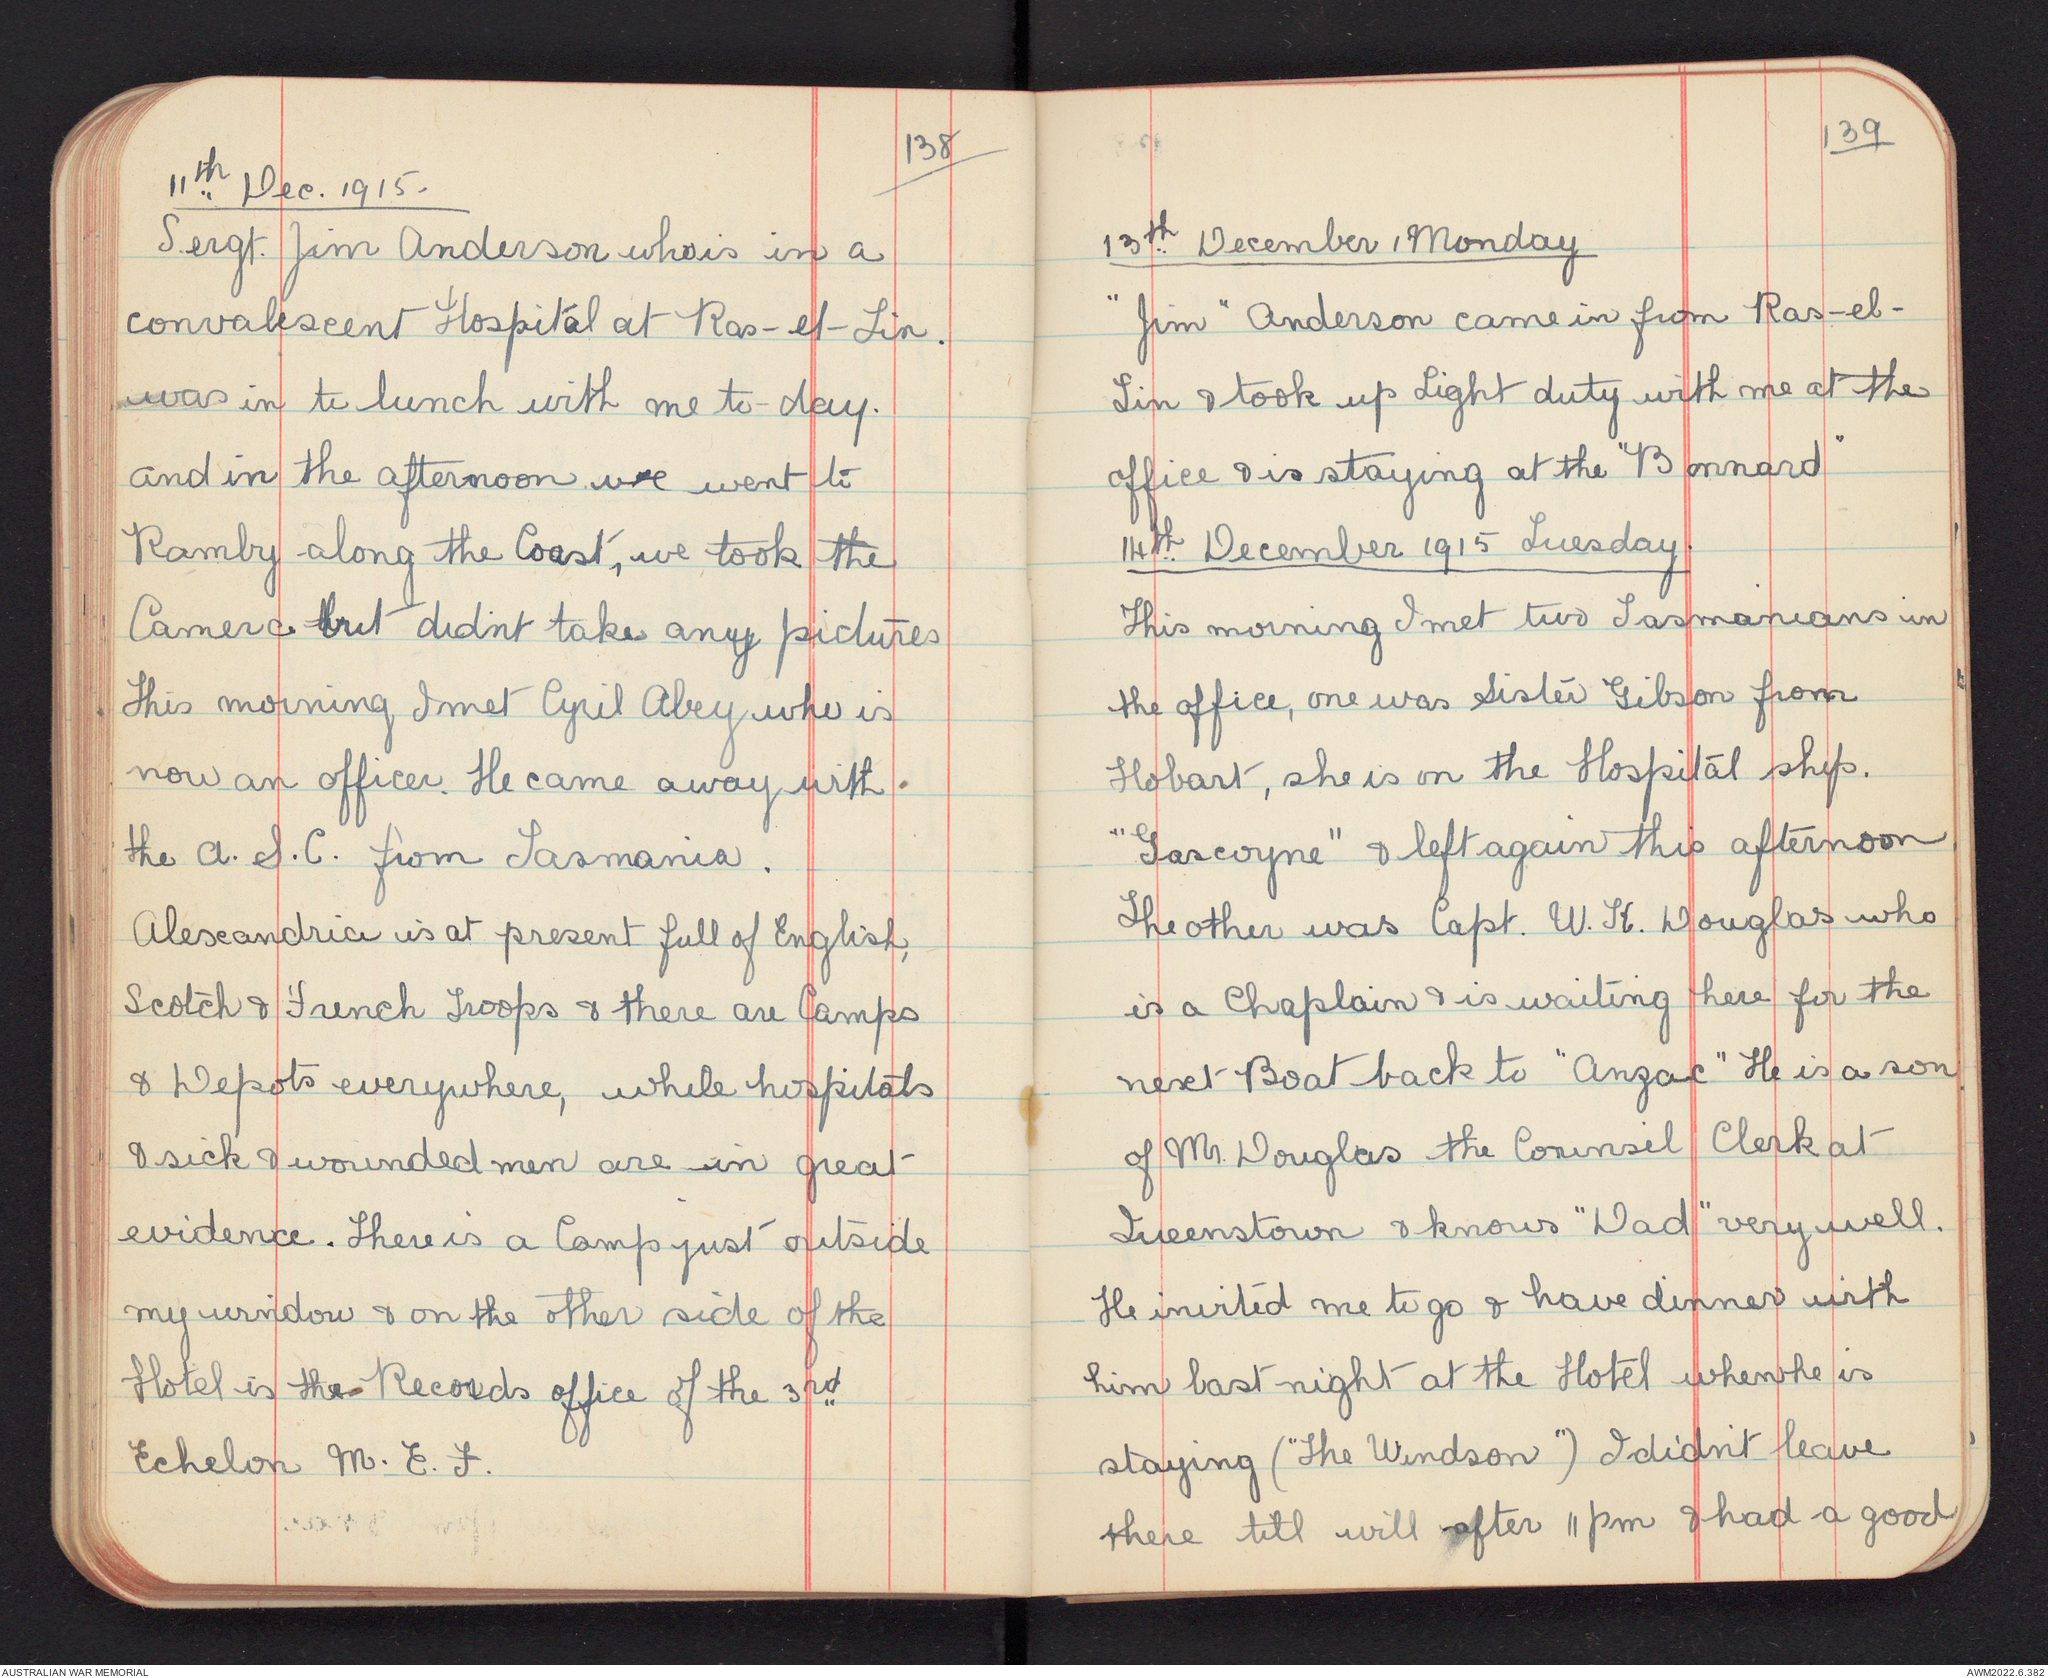 138
11th Dec. 1915.
Sergt. Jim Anderson who is in a
convalescent Hospital at Ras-el-Tin.
was in to lunch with me to-day.
and in the afternoon we went to
Ramby along the Coast, we took the
Camera but didnt take any pictures
This morning I met Cyril Abey who is
now an officer. He came away with
the A.S.C. from Tasmania.
Alexandria is at present full of English,
Scotch & French Troops & there are Camps
& Depots everywhere, while hospitals
& sick & wounded men are in great
evidence. There is a Camp just outside
my window & on the other side of the
Hotel is the Records office of the 3rd
Echelon M.E.F.
139
13th December, Monday
"Jim" Anderson came in from Ras-el-
Tin & took up Light duty with me at the
office & is staying at the "Bonnard"
14th December 1915 Tuesday.
This morning I met two Tasmanians in
the office, one was Sister Gibson from
Hobart, she is on the Hospital ship.
"Gascoyne" & left again this afternoon
The other was Capt. W.K. Douglas who
is a Chaplain & is waiting here for the
next Boat back to "Anzac" He is a son
of Mr. Douglas the Counsil Clerk at
Queenstown & knows "Dad" very well.
He invited me to go & have dinner with
him last night at the Hotel when he is
staying ("The Windson") I didn't leave
there till will after 11 pm & had a good
AUSTRALIAN WAR MEMORIAL
AWM2022.6.382